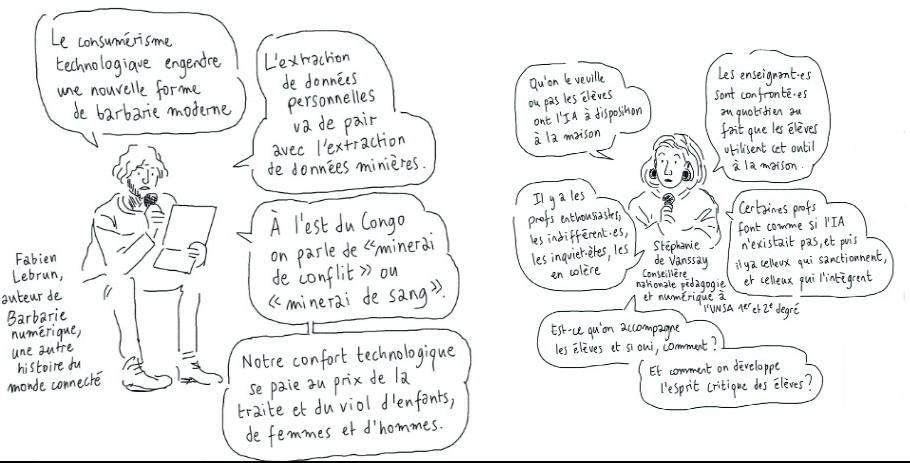 Le consumérisme
technologique engendre
une nouvelle forme
de barbarie moderne
L'extraction
de données
personnelles
va de pair
avec l'extraction
de données minières.
À l'est du Congo
on parle de «minerai
de conflit» ou
«minerai de sang».
Notre confort technologique
se paie au prix de la
traite et du viol d'enfants,
de femmes et d'hommes.
Fabien
Lebrun,
auteur de
Barbarie
numérique,
une autre
histoire du
monde connecté
Qu'on le veuille
ou pas les élèves
ont l'IA à disposition
à la maison
Les enseignant·es
sont confronté·es
au quotidien au
fait que les élèves
utilisent cet outil
à la maison.
Il y a les
profs enthousiastes,
les indifférent·es,
les inquiet·ètes, les
en colère
Certaines profs
font comme si l'IA
n'existait pas, et puis
il y a celleux qui sanctionnent,
et celleux qui l'intègrent
Stéphanie
de Vanssay
Conseillère
nationale pédagogie
et numérique à
l'UNSA 1er et 2e degré
Est-ce qu'on accompagne
les élèves et si oui, comment ?
Et comment on développe
l'esprit critique des élèves ?